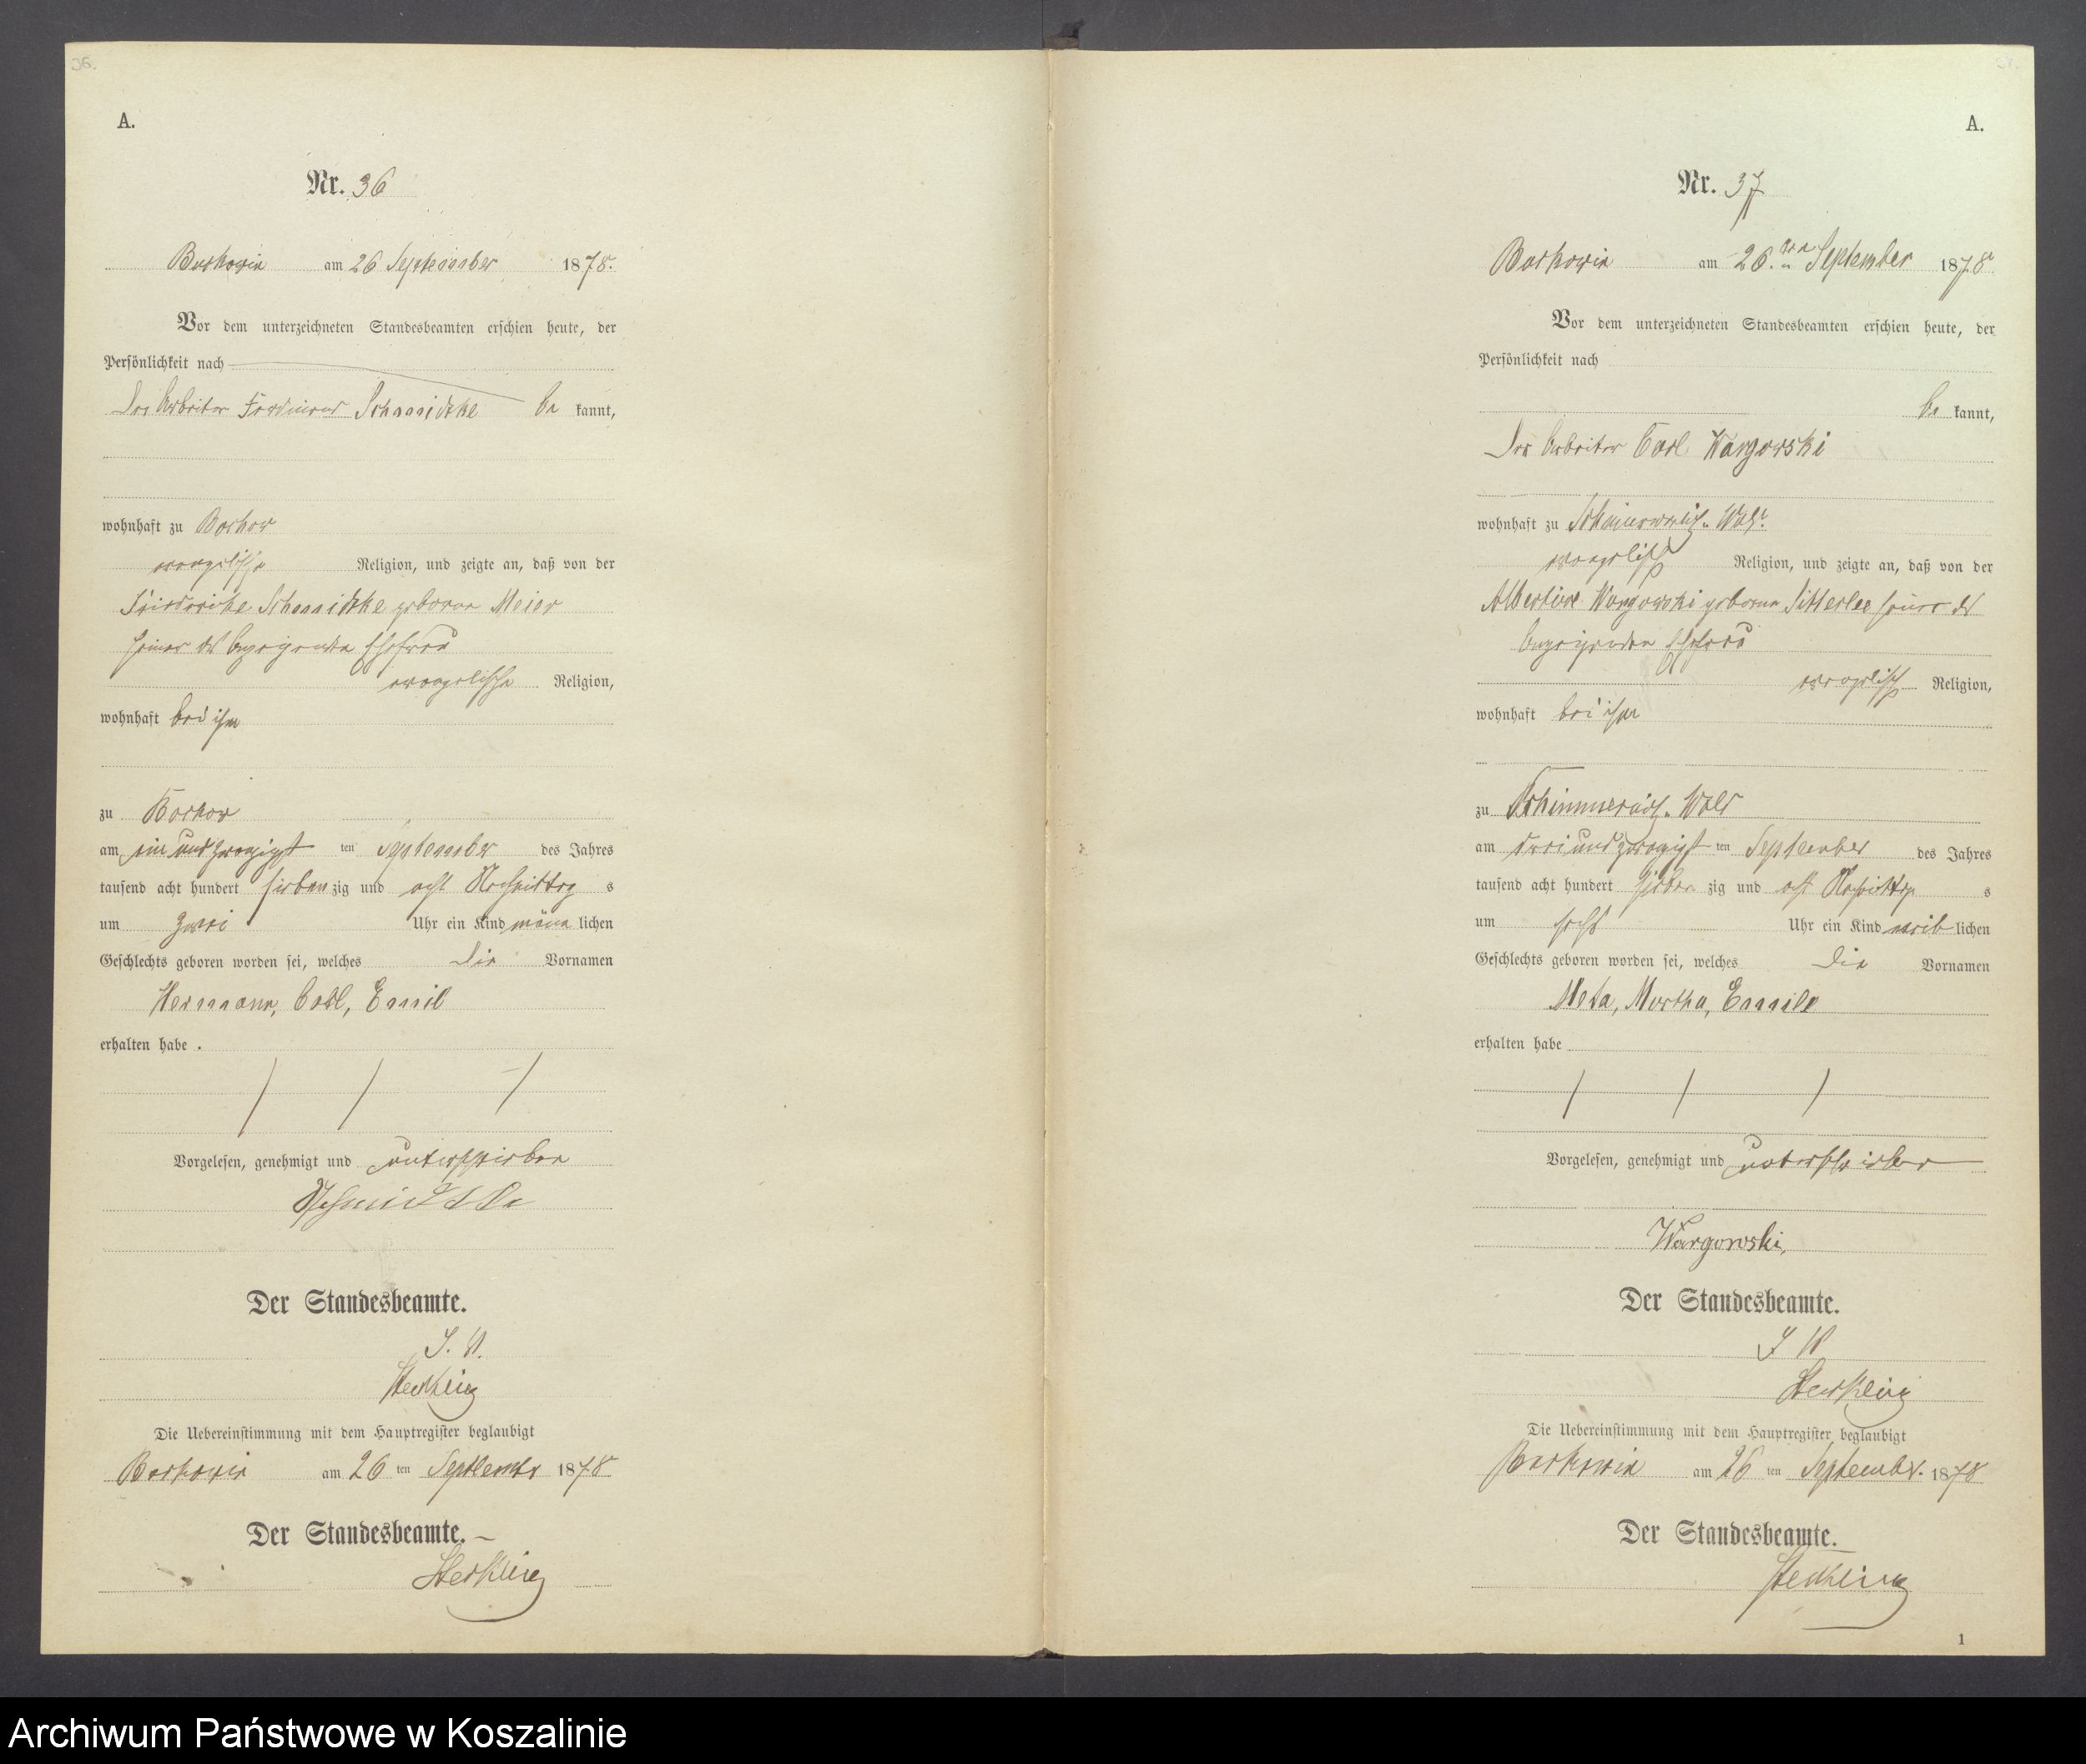 36.
A.
Nr. 36
Borkowin am 26 September 1878.
Vor dem unterzeichneten Standesbeamten erschien heute, der
Persönlichkeit nach
Der Arbeiter Ferdinand Schmidtke be kannt,
wohnhaft zu Borkow
evangelische Religion, und zeigte an, daß von der
Friedericke Schmidtke geborne Meier
seiner des Anzeigenden Ehefrau
evangelische Religion,
wohnhaft bei ihm
zu Borkow
am ein und zwanzigst ten September des Jahres
tausend acht hundert sieben zig und acht Nachmittag s
um zwei Uhr ein Kind männ lichen
Geschlechts geboren worden sei, welches die Vornamen
Hermann, Carl, Emil
erhalten habe .
Vorgelesen, genehmigt und unterschrieben
Schmidtke
Der Standesbeamte.
J. V.
Steckling
Die Uebereinstimmung mit dem Hauptregister beglaubigt
Borkowin am 26 ten September 1878
Der Standesbeamte.
Steckling
A.
Nr. 37
Borkowin am 26. ten September 1878
Vor dem unterzeichneten Standesbeamten erschien heute, der
Persönlichkeit nach
be kannt,
Der Arbeiter Carl Wargowski
wohnhaft zu
evangelisch Religion, und zeigte an, daß von der
Albertine Wargowski geborne seiner des
Anzeigenden Ehefrau
evangelisch Religion,
wohnhaft bei ihm
zu Wald
am drei und zwanzigst ten September des Jahres
tausend acht hundert sieben zig und acht Nachmittag s
um sechs Uhr ein Kind weib lichen
Geschlechts geboren worden sei, welches die Vornamen
Meta, Martha, Emilie
erhalten habe
Vorgelesen, genehmigt und unterschrieben
Wargowski,
Der Standesbeamte.
J V
Steckling
Die Uebereinstimmung mit dem Hauptregister beglaubigt
Borkowin am 26 ten September. 1878
Der Standesbeamte.
Steckling
1
Archiwum Państwowe w Koszalinie